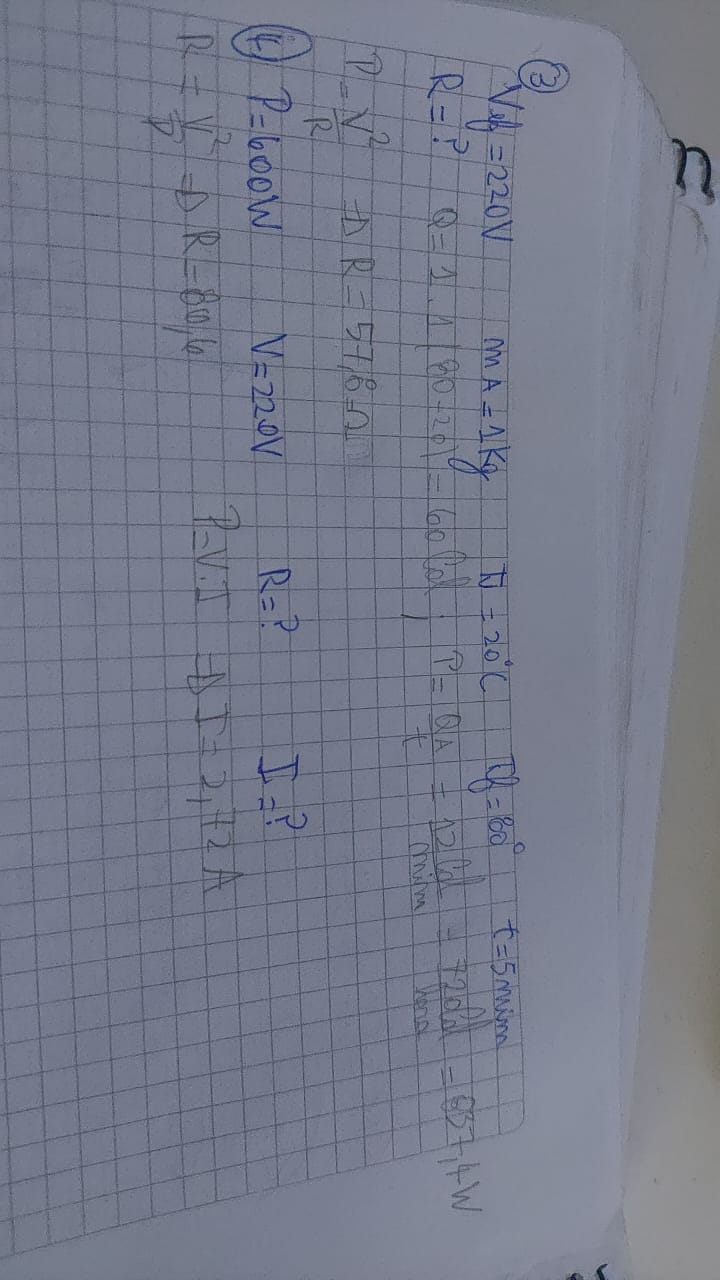 ③
Vef = 220V mA = 1Kg Ti = 20°C Tf = 80° t = 5 mim
R = ? Q = 1 . 1 (80-20) = 60 Cal ; P = QA/t = 12 Cal/mim = 720 Cal/hora = 837,4W
P = V²/R ⇒ R = 57,8 Ω
④ P = 600W V = 220V R = ? I = ?
R = V²/P ⇒ R = 80,6 P = V.I ⇒ I = 2,72 A